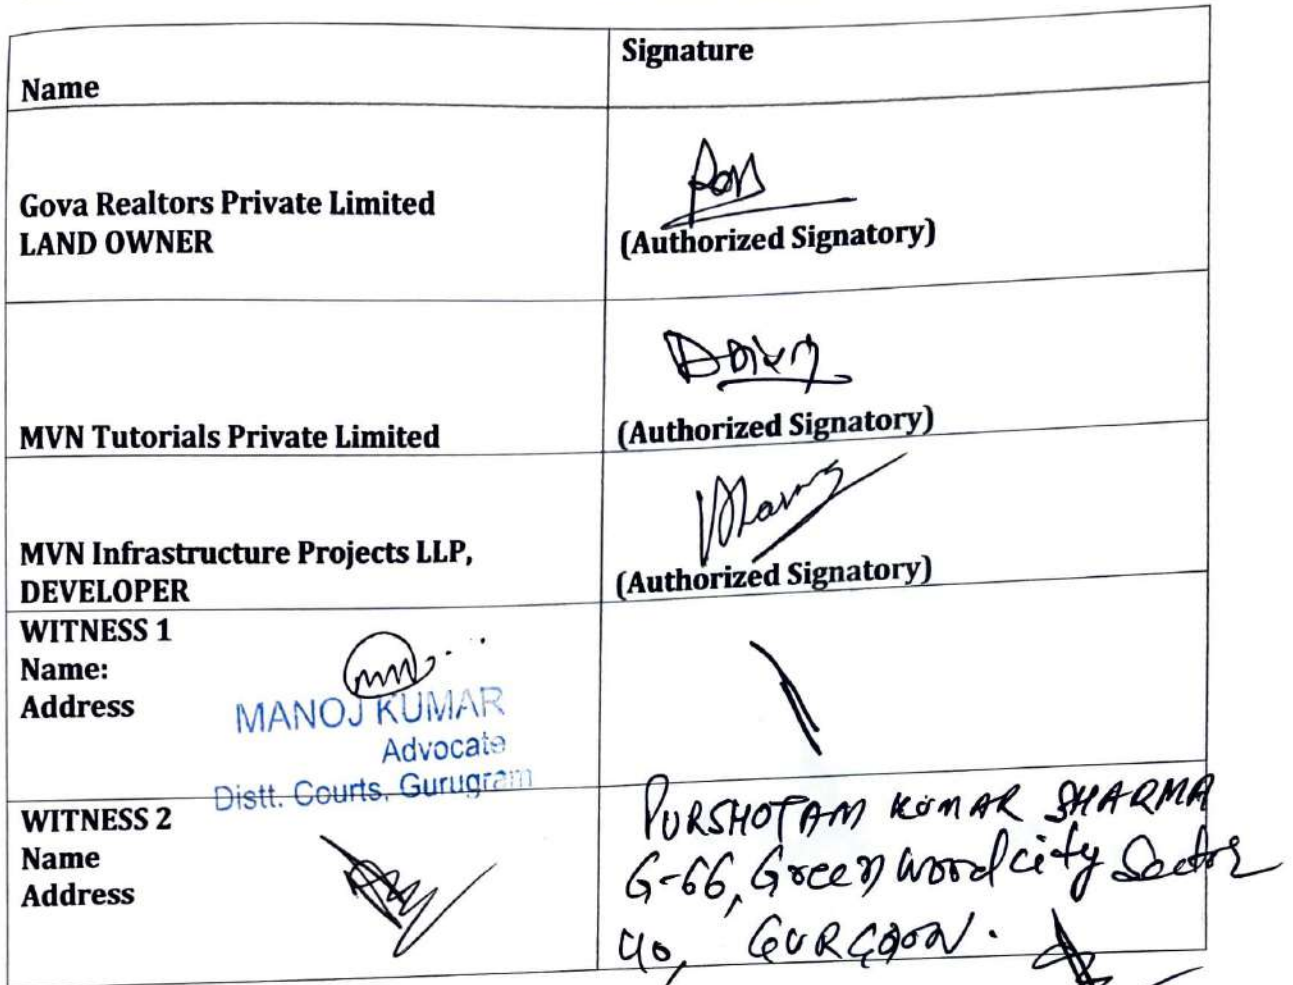 Name
Signature
Gova Realtors Private Limited
LAND OWNER
(Authorized Signatory)
MVN Tutorials Private Limited
(Authorized Signatory)
MVN Infrastructure Projects LLP,
DEVELOPER
(Authorized Signatory)
WITNESS 1
Name:
Address
MANOJ KUMAR
Advocate
Distt. Courts, Gurugram
WITNESS 2
Name
Address
PURSHOTAM KUMAR SHARMA
G-66, Green wood city Sector
40, GURGAON.